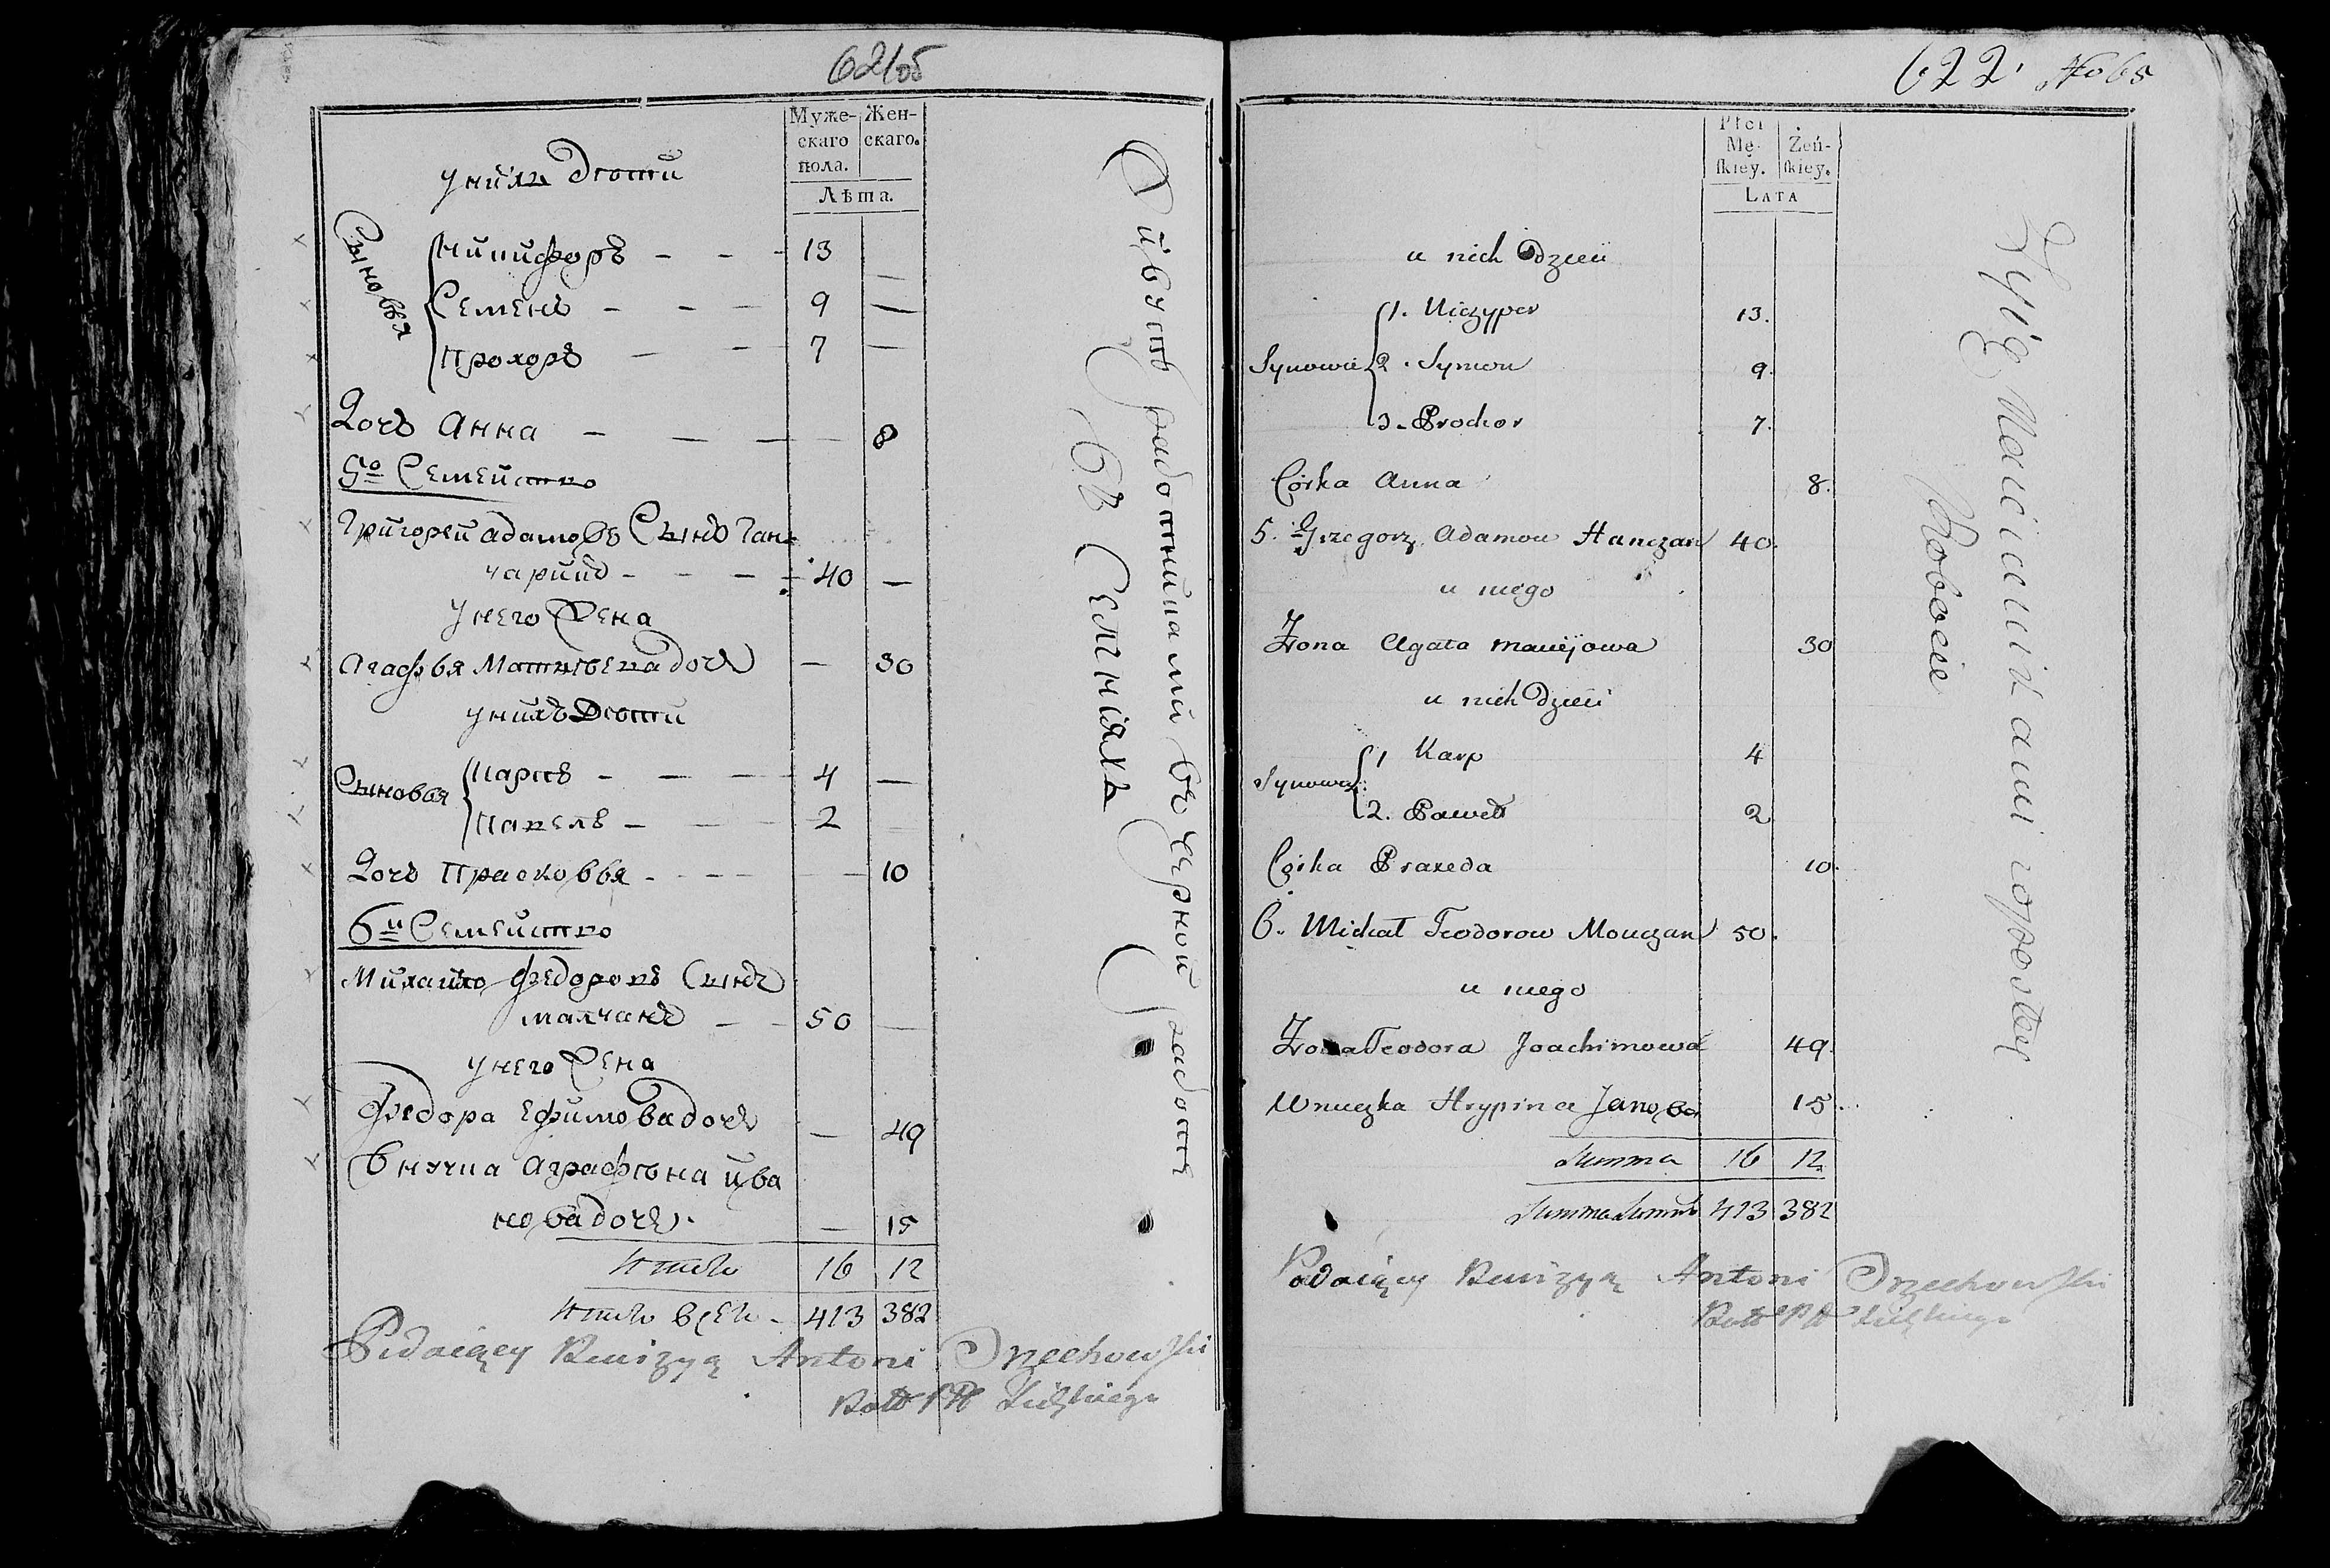 621об
Муже- Жен-
скаго скаго.
пола.
Лѣта.
у нихъ Дѣти
Сыновья
Ничифоръ - - - 13
Семенъ - - - 9 —
Прохоръ - - - 7 —
Дочь Анна - - - — 8
5о Семейство
Григорей Адамовъ Сынъ Ган=
чаринъ - - - 40 —
У него Жена
Агафья Матвѣева дочь — 30
у нихъ Дѣти
Сыновья
Карпъ - - - 4 —
Павелъ - - - 2
Дочь Прасковья - - - — 10
6и Семейство
Михайло Федоровъ Сынъ
Малчанъ - - 50 —
У него Жена
Федора Ефимова дочь — 49
Внучка Аграфѣна Ива
нова дочь. — 15
Итого 16 12
Итого всего - 413 382
Podaiący Rewizyą Antoni Orzechowski
Живутъ работниками въ черной работѣ
въ Селеніяхъ
622. No 65
Płci
Mę- Żeń-
skiey. skiey.
LATA
u nich Dzieci
Synowie
1. Niczyper 13.
2. Symon 9.
3. Prochor 7.
Córka Anna 8.
5. Grzegorz Adamow Hanczar 40.
u niego
Żona Agata Maciejowa 30
u nich Dzieci
Synowie
1 Karp 4
2. Paweł 2
Córka Praxeda 10.
6. Michał Teodorow Mouczan 50.
u niego
Żona Teodora Joachimowa 49.
Wnuczka Hrypina Janowa 15.
Summa 16 12
Summa Summ 413 382
Podaiący Rewizyą Antoni Orzechowski
Żyią
Robocie